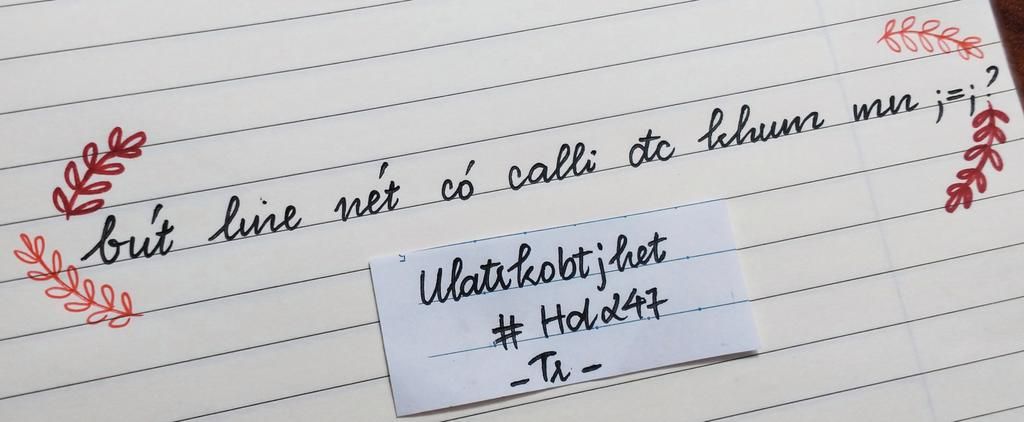 bút line nét có calli đc khum mn ;=;?
Ulatikobtjhet
# Hd247
- Tr -